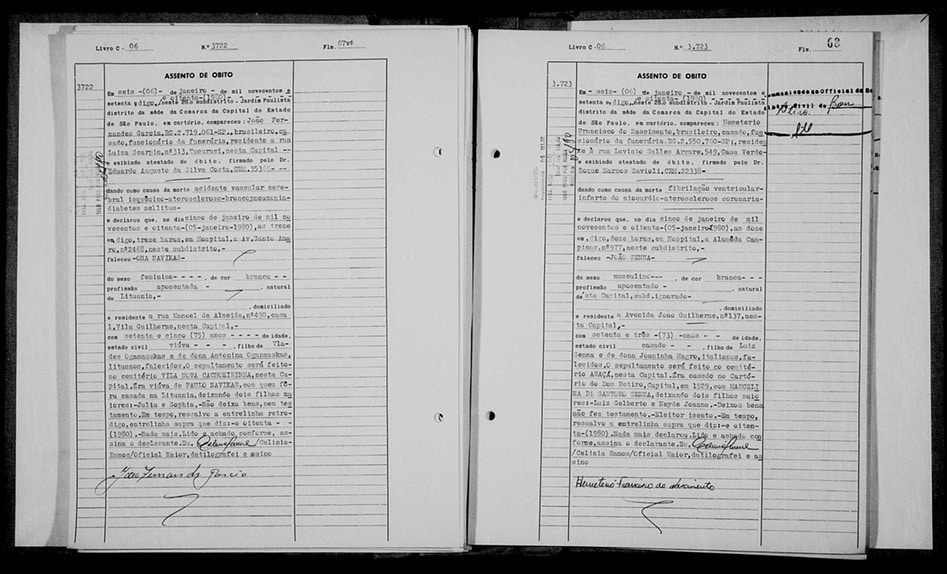 Livro C - 06 N.º 3722 Fls. 67vº
ASSENTO DE OBITO
3722
Em seis -(06)- de janeiro - de mil novecentos e
e oitenta -(1980)-
setenta e digo,/neste 28.o subdistrito - Jardim Paulista
distrito da séde da Comarca da Capital do Estado
de São Paulo, em cartório, compareceu: João Fer-
nandes Garcia,RG.2.719.061-SP., brasileiro, ca-
sado, funcionário da funerária, residente a rua
Luisa Scarpin, nº313, Tucuruvi, nesta Capital --
e exibindo atestado de óbito, firmado pelo Dr.
Eduardo Augusto da Silva Costa, CRM.15386---
dando como causa da morte acidente vascular cere-
bral isquêmico-aterosclerose-broncopneumonia-
diabetes mellitus-
e declarou que, no dia cinco de janeiro de mil no
vecentos e oitenta-(05-janeiro-1980), as treze
em,digo, treze horas, em Hospital, a Av. Santo Ama
ro, nº2468, neste subdistrito,-
faleceu -ONA NAVIKAS-
do sexo feminino- - - -, de cor branca- - -
profissão aposentada - , natural
de Lituania,-
, domiciliado
e residente a rua Manoel de Almeida, nº490, casa
1, Vila Guilherme, nesta Capital,-
com setenta e cinco (75) anos - - - de idade,
estado civil viúva - - -, filho de Vla-
des Oganauskas e de dona Antonina Oganauskas,
lituanos, falecidos. O sepultamento será feito
no cemitério VILA NOVA CACHOEIRINHA, nesta Ca-
pital. Era viúva de PAULO NAVIKAS, com quem fô-
ra casada na Lituania, deixando dois filhos ma
iores: Julia e Sophia. Não deixa bens, nem tes
tamento. Em tempo, ressalvo a entrelinha retro-
digo, entrelinha supra que diz:-e oitenta -
(1980).-Nada mais. Lido e achado conforme, as-
sina o declarante. Eu, /Celinia
Ramos/Oficial Maior, datilografei e assino
João Fernandes Garcia
Livro C - 06 N.º 3.723 Fls. 68
ASSENTO DE OBITO
3.723
Em seis- (06)- de janeiro - de mil novecentos e
e oitenta -(1980)-
setenta e digo,/neste 28.o subdistrito - Jardim Paulista
distrito da séde da Comarca da Capital do Estado
de São Paulo, em cartório, compareceu: Hemeterio
Francisco do Nascimento, brasileiro, casado, fun
cionário da funerária. RG.2.550.760-SP; residen
te à rua Lavinio Salles Arcure, 549, Casa Verde-
e exibindo atestado de óbito, firmado pelo Dr.
Roque Marcos Savioli, CRM 22338-
dando como causa da morte fibrilação ventricular-
infarto do miocárdio-aterosclerose coronaria-
e declarou que, no dia cinco de janeiro de mil
novecentos e oitenta-(05-janeiro-1980), as doze
em,digo, doze horas, em Hospital, a Alameda Cam-
pinas, nº977, neste subdistrito,-
faleceu -JOÃO SENNA-
do sexo masculino---, de cor branca- - -
profissão aposentado - , natural
desta Capital, subd.ignorado-
, domiciliado
e residente a Avenida Joao Guilherme, nº137, nes-
ta Capital,-
com setenta e três -(73) -anos - - de idade,
estado civil casado - - , filho de Luiz
Senna e de dona Joaninha Magro, italianos, fa-
lecidos. O sepultamento será feito no cemité-
rio ARAÇÁ, nesta Capital. Era casado no Cartó-
rio do Bom Retiro, Capital, em 1929, com MARCELI
NA DI SANTORO SENNA, deixando dois filhos maio
res:-Luiz Gelberto e Neyde Joanna.-Deixou bens
não fez testamento.-Eleitor isento.-Em tempo,
ressalvo a entrelinha supra que diz:-e oiten-
ta-(1980). Nada mais declarou. Lido e achado con
forme, assina o declarante. Eu,
/Celinia Ramos/Oficial Maior, datilografei e as
sino
Hemeterio Francisco do Nascimento